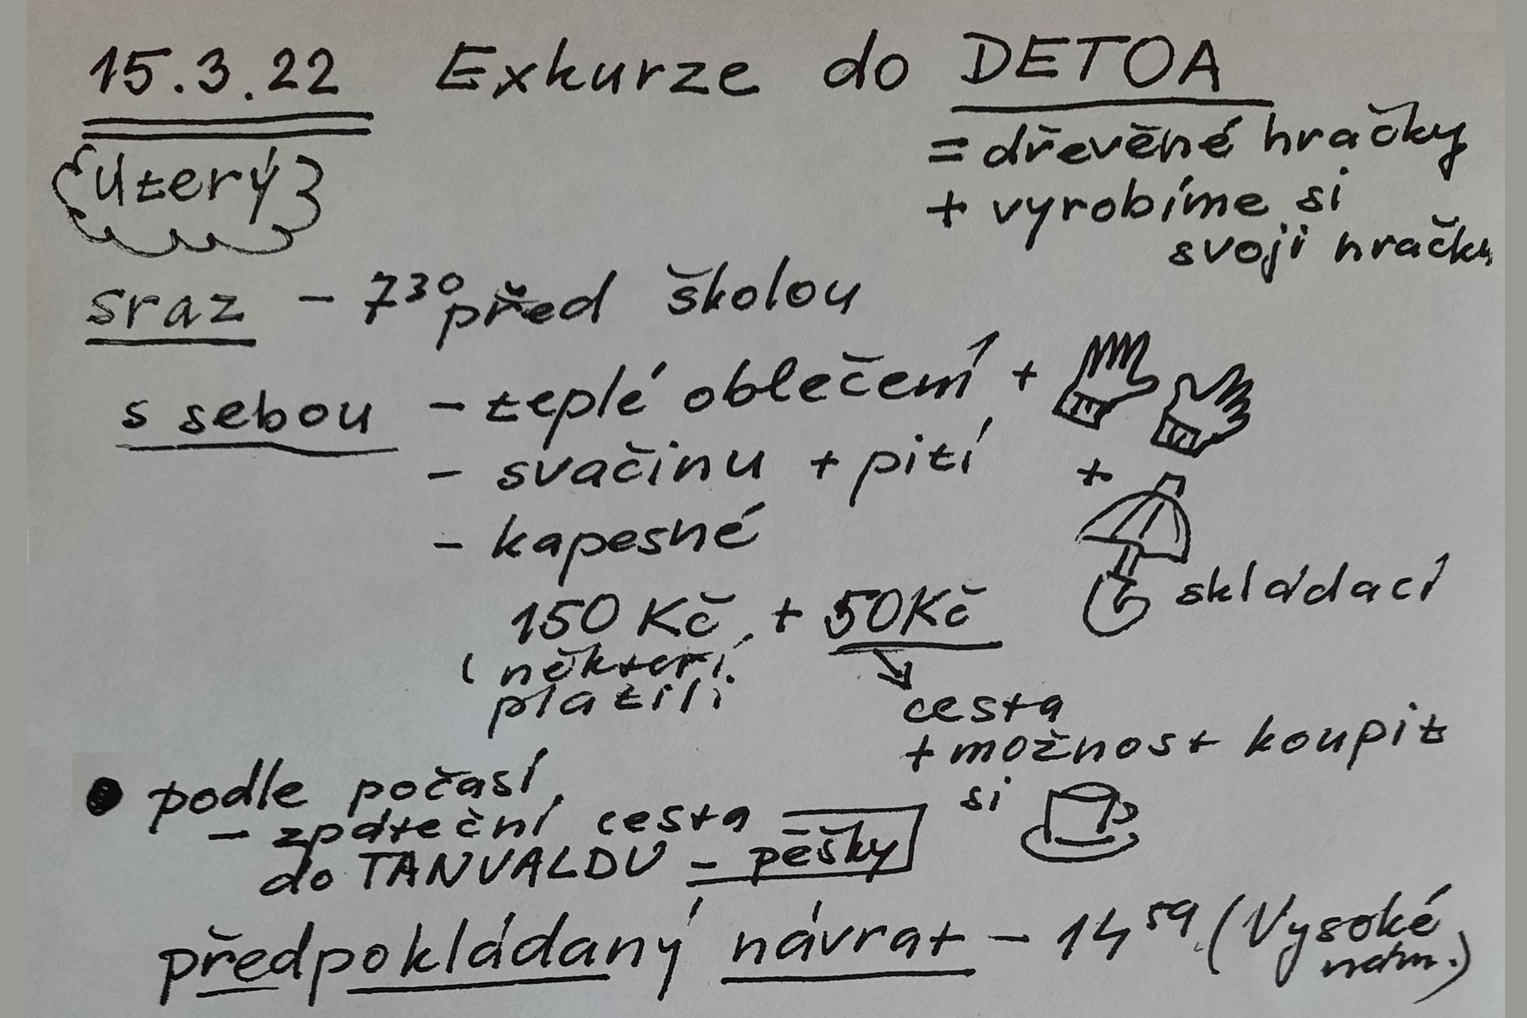 15.3.22 Exkurze do DETOA
= dřevěné hračky
{úterý}
+ vyrobíme si
svoji hračku
sraz - 7³⁰ před školou
s sebou - teplé oblečení +
- svačinu + pití +
- kapesné
skládací
150 Kč + 50Kč
(někteří
platili
cesta
+ možnost koupit
si
• podle počasí
- zpáteční cesta
do TANVALDU - pěšky
předpokládaný návrat - 14⁵⁹ (Vysoké
nám.)